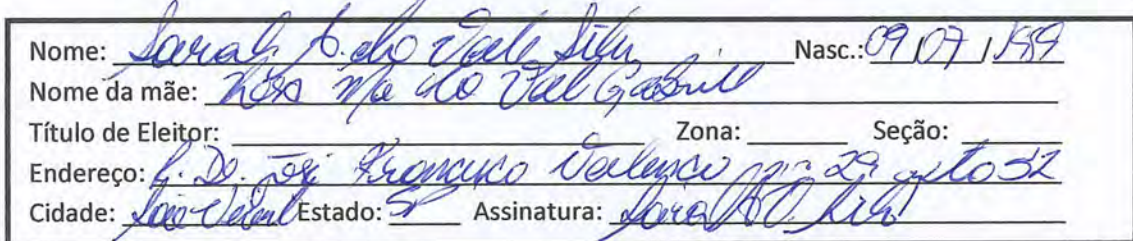 Nome: Sarah A. do Vale Silva Nasc.: 09/07/1989
Nome da mãe: Mª do Val Gabriel
Título de Eleitor: Zona: Seção:
Endereço: R. Dr. José Francisco Valença 29 apto 32
Cidade: São Estado: SP Assinatura: Sarah A V. Silva